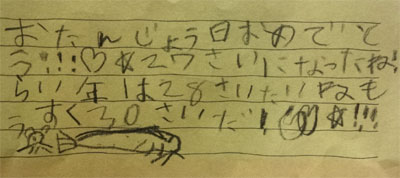 おたんじょう日おめでと
う!!!♡☆27さいになったね!
らい年は28さいだいね も
うすぐ30さいだ!♡☆!!!